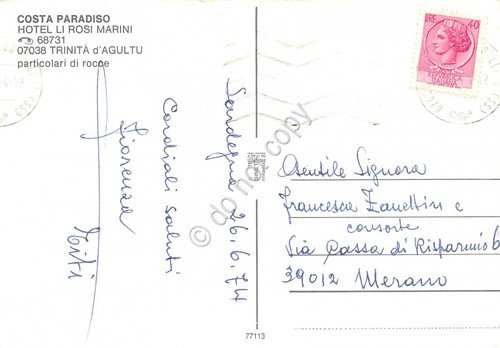 COSTA PARADISO
HOTEL LI ROSI MARINI
68731
07038 TRINITÀ d'AGULTU
particolari di rocce
LIRE 40
Sardegna 26.6.74
Cordiali saluti
Fiorenza
Titi
Gentile Signora
Francesca Zanettin e
consorte
Via Cassa di Risparmio 6
39012 Merano
77113
do not copy